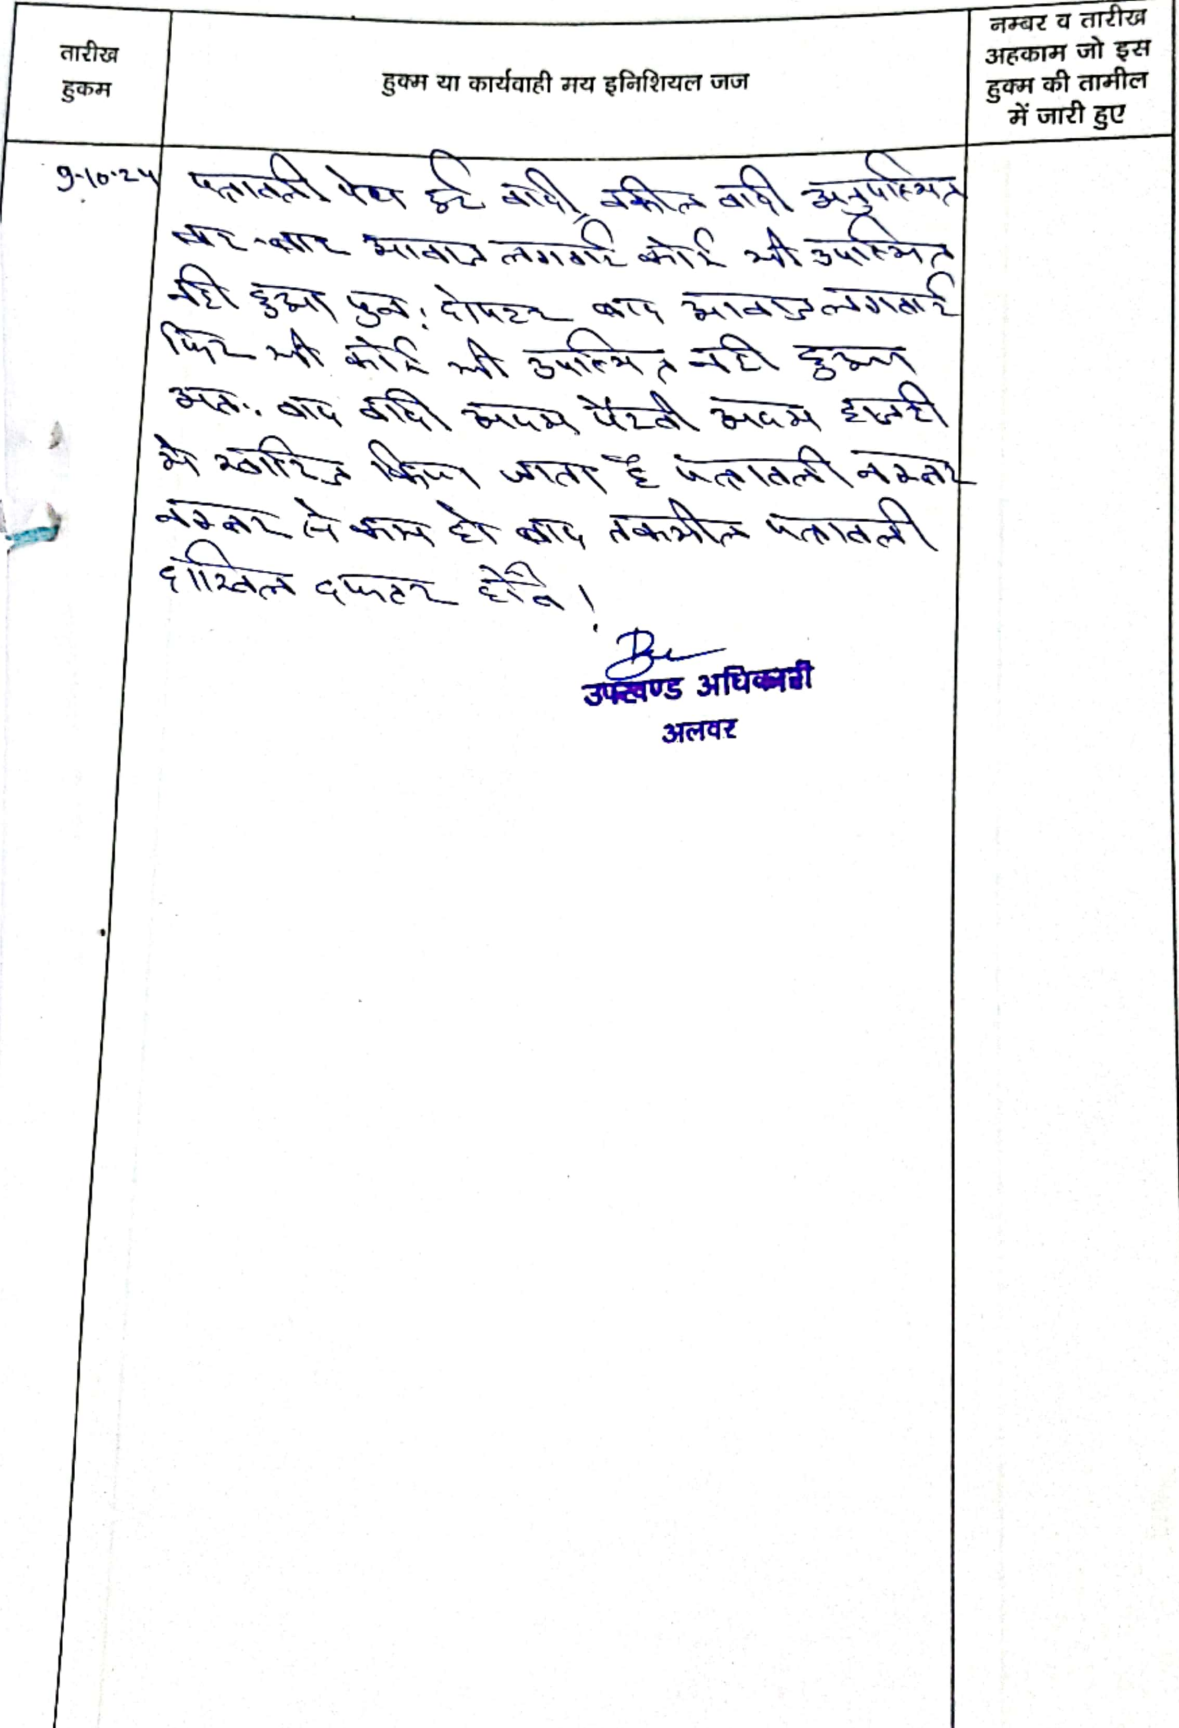 तारीख
हुकम
हुक्म या कार्यवाही मय इनिशियल जज
नम्बर व तारीख
अहकाम जो इस
हुक्म की तामील
में जारी हुए
9-10-24 पत्रावली पेश हुई वादी, वकील वादी अनुपस्थित
बार-बार आवाज लगवाई कोई भी उपस्थित
नही हुआ पुन: दोपहर बाद आवाज लगवाई
फिर भी कोई भी उपस्थित नही हुआ
अत: वाद वादी अदम पैरवी अदम हाजरी
मे खारिज किया जाता है पत्रावली नम्बर
नम्बर से कम हो बाद तकमील पत्रावली
दाखिल दफ्तर होवे।
उपखण्ड अधिकारी
अलवर